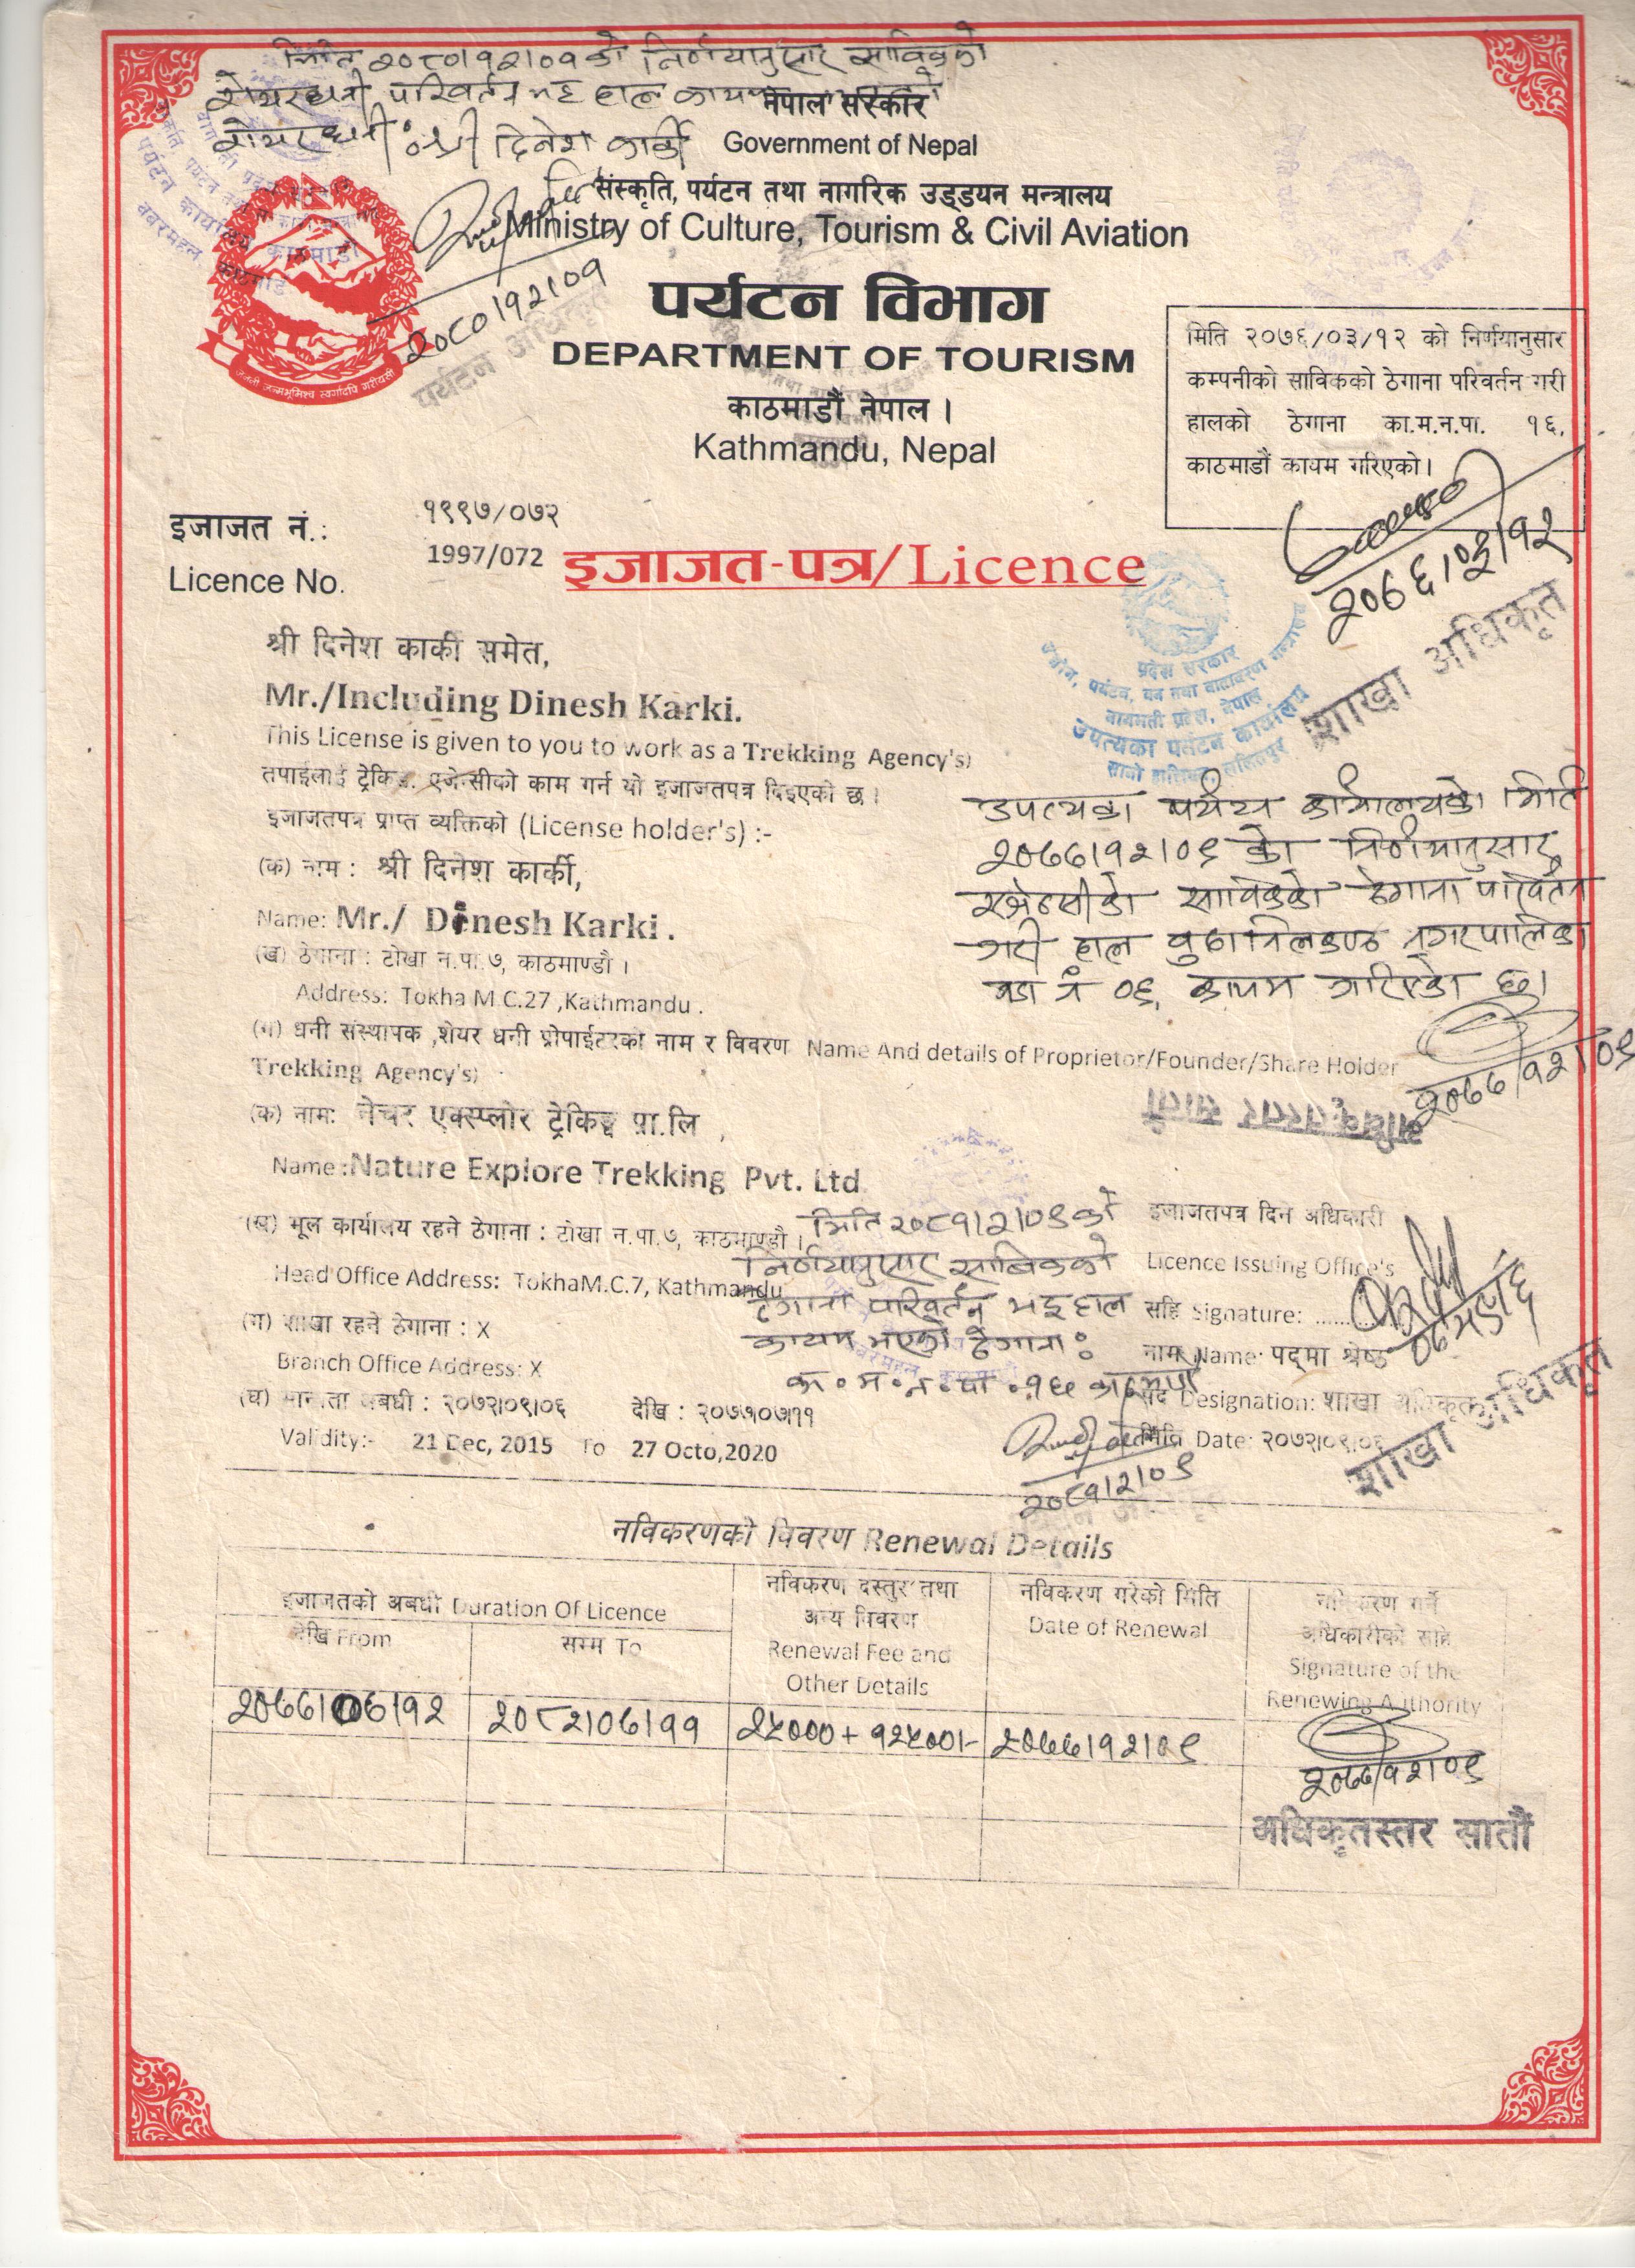 मिति २०८०।१२।०१ को निर्णयानुसार साविकको
शेयरधनी परिवर्तन भइ हाल कायम
शेयरधनी : श्री दिनेश कार्की
२०८०।१२।०१
पर्यटन अधिकृत
नेपाल सरकार
Government of Nepal
संस्कृति, पर्यटन तथा नागरिक उड्डयन मन्त्रालय
Ministry of Culture, Tourism & Civil Aviation
पर्यटन विभाग
DEPARTMENT OF TOURISM
काठमाडौं नेपाल ।
Kathmandu, Nepal
जननी जन्मभूमिश्च स्वर्गादपि गरीयसी
मिति २०७६/०३/१२ को निर्णयानुसार
कम्पनीको साविकको ठेगाना परिवर्तन गरी
हालको ठेगाना का.म.न.पा. १६,
काठमाडौं कायम गरिएको।
२०७६।०३।१२
शाखा अधिकृत
इजाजत नं.: १९९७/०७२
Licence No. 1997/072
इजाजत-पत्र/Licence
श्री दिनेश कार्की समेत,
Mr./Including Dinesh Karki.
This License is given to you to work as a Trekking Agency's)
तपाईलाई ट्रेकिङ. एजेन्सीको काम गर्न यो इजाजतपत्र दिइएको छ ।
इजाजतपत्र प्राप्त व्यक्तिको (License holder's) :-
(क) नाम : श्री दिनेश कार्की,
Name: Mr./ Dinesh Karki .
(ख) ठेगाना : टोखा न.पा.७, काठमाण्डौ ।
Address: Tokha M.C.27 ,Kathmandu .
प्रदेश सरकार
उद्योग, पर्यटन, वन तथा वातावरण मन्त्रालय
बागमती प्रदेश, नेपाल
उपत्यका पर्यटन कार्यालय
सानो हात्तिवन, ललितपुर
उपत्यका पर्यटन कार्यालयको मिति
२०७७।१२।०९ को निर्णयानुसार
एजेन्सीको साविकको ठेगाना परिवर्तन
गरी हाल बुढानिलकण्ठ नगरपालिका
वडा नं ०९, कायम गरिएको छ।
२०७७/१२।०९
अधिकृतस्तर सातौं
(ग) धनी संस्थापक ,शेयर धनी प्रोपाईटरका नाम र विवरण Name And details of Proprietor/Founder/Share Holder
Trekking Agency's)
(क) नाम: नेचर एक्स्प्लोर ट्रेकिङ्ग प्रा.लि ,
Name :Nature Explore Trekking Pvt. Ltd.
(ख) मूल कार्यालय रहने ठेगाना : टोखा न.पा.७, काठमाण्डौ ।
Head Office Address: TokhaM.C.7, Kathmandu
(ग) शाखा रहने ठेगाना : X
Branch Office Address: X
(घ) मान्यता अबधी : २०७२।०९।०६ देखि : २०७७।०७।११
Validity:- 21 Dec, 2015 To 27 Octo,2020
मिति २०८१।२।०९ को
निर्णयानुसार साविकको
ठेगाना परिवर्तन भइ हाल
कायम भएको ठेगाना :
का.म.न.पा.१६ काठमाण्डौ
२०८१।२।०९
इजाजतपत्र दिने अधिकारी
Licence Issuing Office's
सहि Signature: ..........
नाम Name: पद्मा श्रेष्ठ
पद Designation: शाखा अधिकृत
मिति Date: २०७२।०९।०६
शाखा अधिकृत
नविकरणको विवरण Renewal Details
इजाजतको अबधी Duration Of Licence
देखि From
सम्म To
नविकरण दस्तुर तथा
अन्य विवरण
Renewal Fee and
Other Details
नविकरण गरेको मिति
Date of Renewal
नविकरण गर्ने
अधिकारीको सहि
Signature of the
Renewing Authority
२०७७।०७।१२ २०८२।०७।११ २५०००+१२५००।- २०७७।१२।०९
२०७७/१२।०९
अधिकृतस्तर सातौं